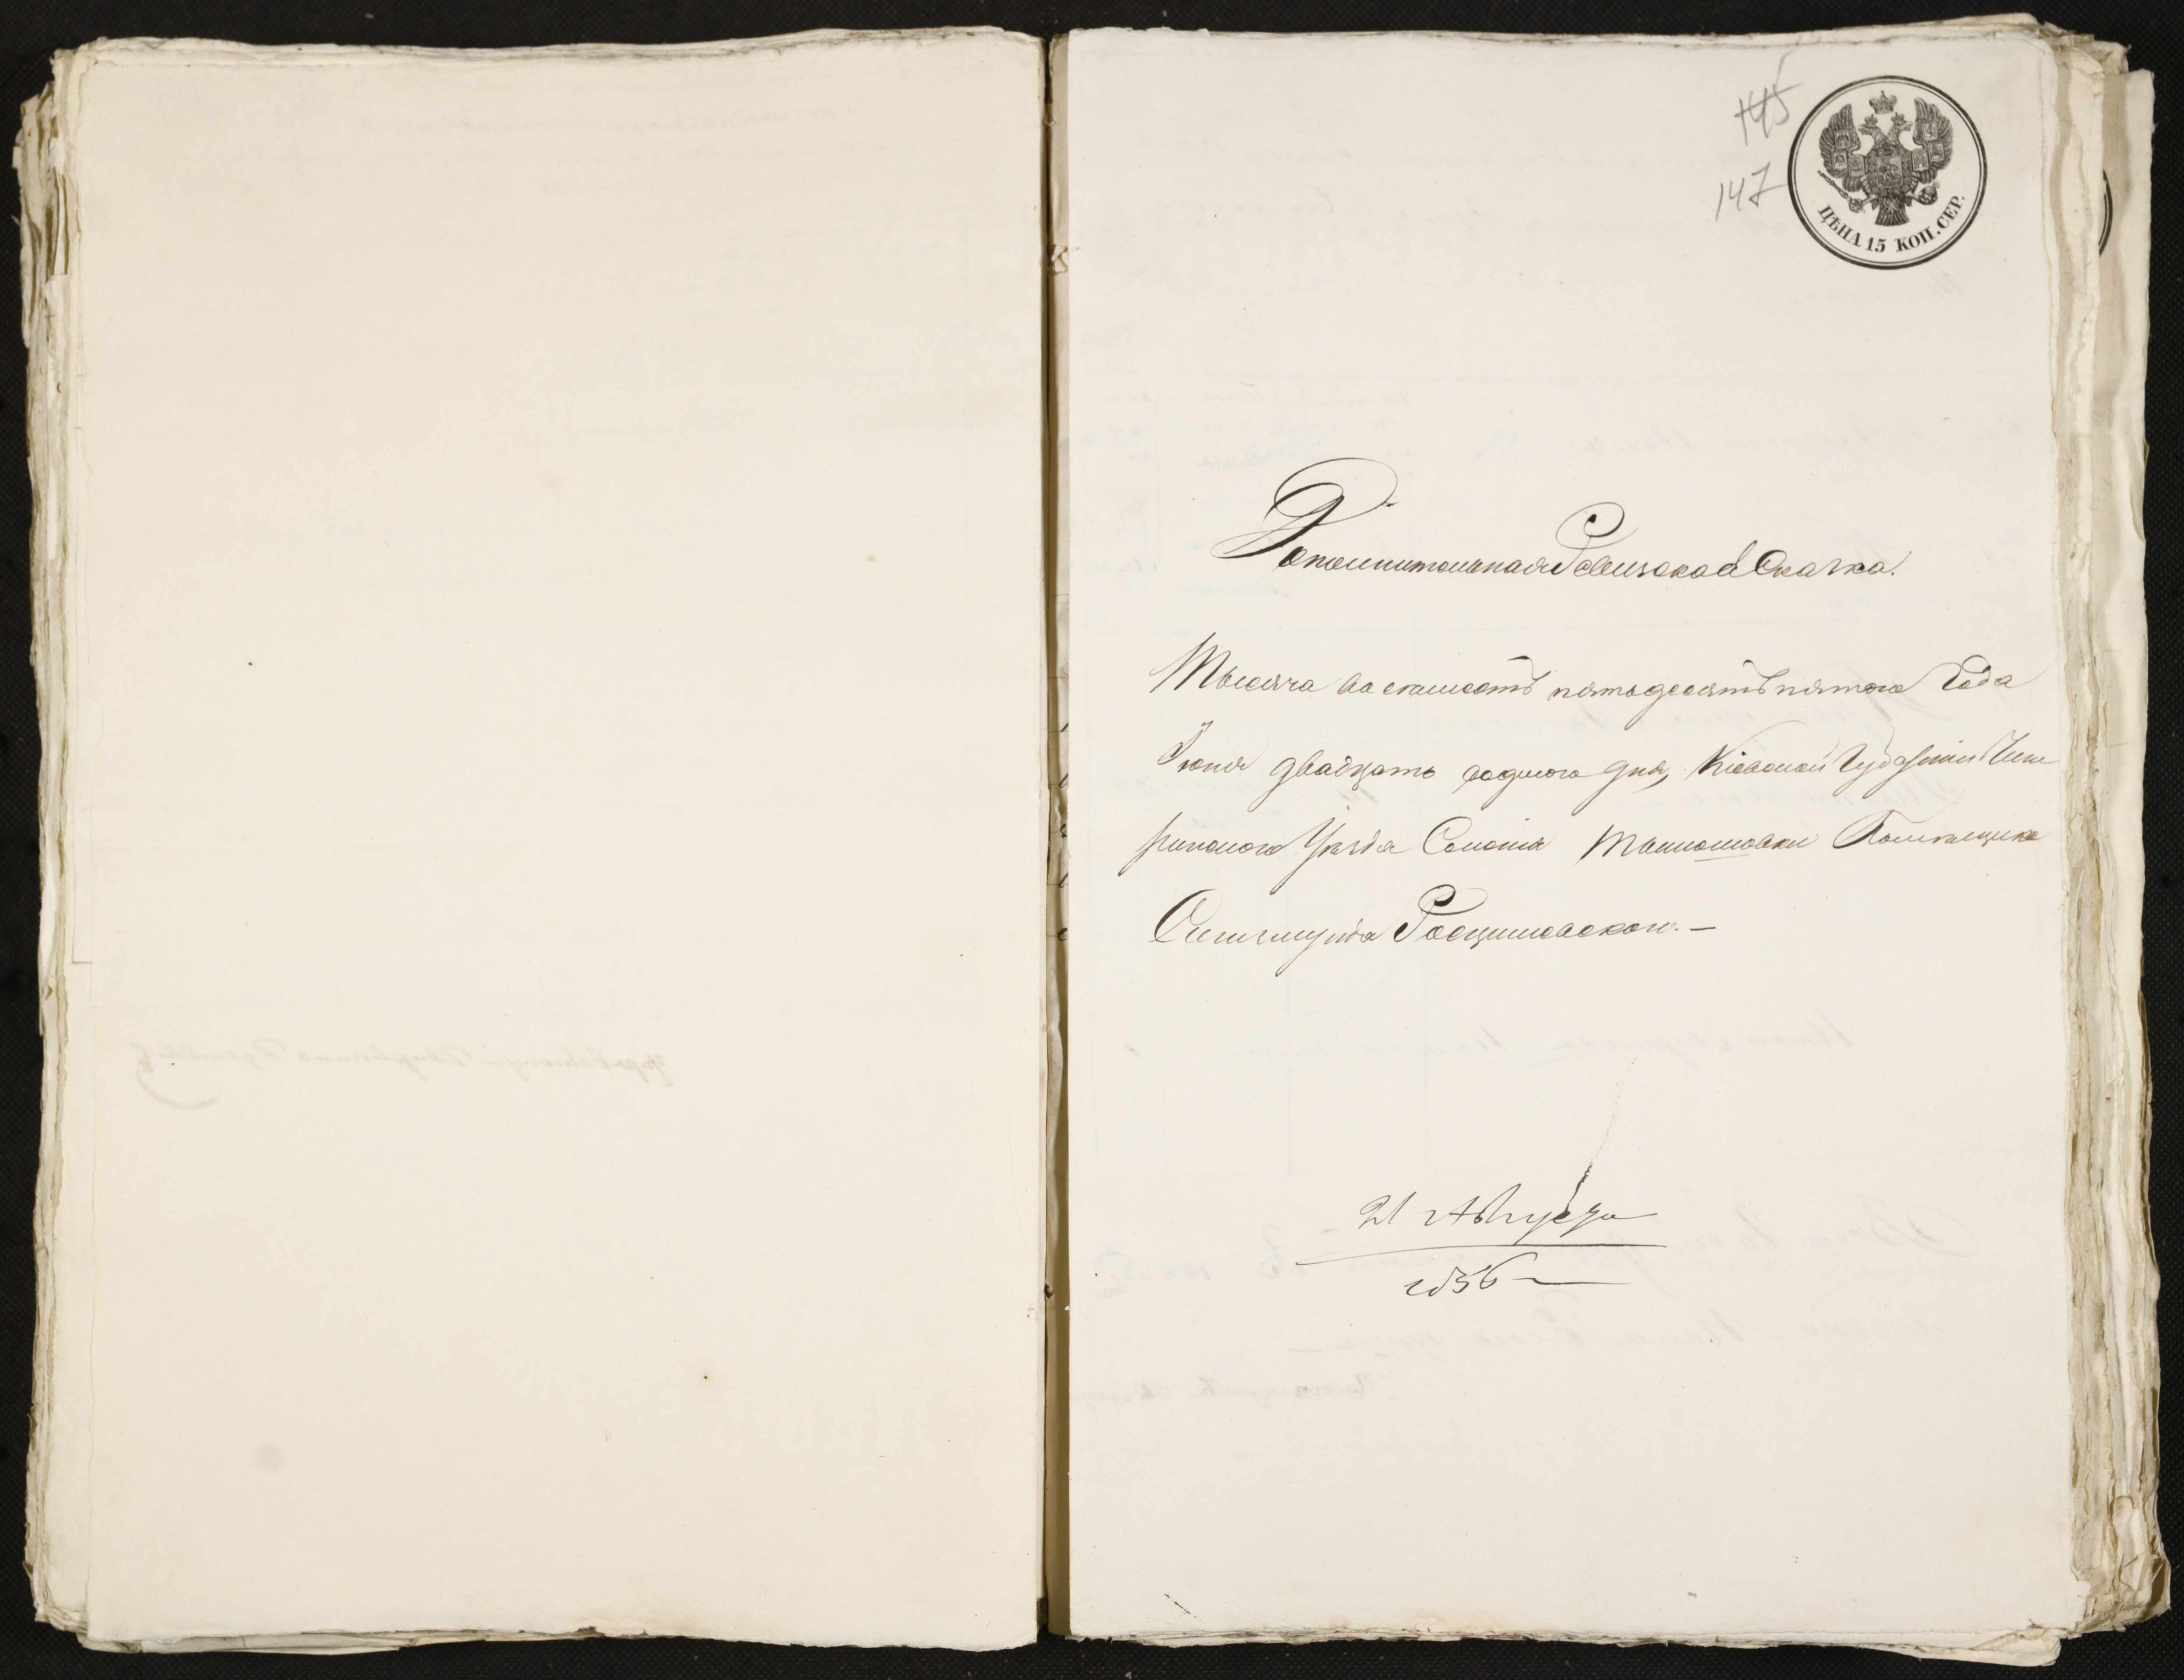 145
147
ЦѢНА 15 КОП. СЕР.
Дополнительная Ревизская Сказка.
Тысяча восемьсотъ пятьдесятъ пятого Года
Іюня двадцать седмого дня, Кіевской Губерніи Чиги
ринского Уѣзда Селенія Помѣщика
Сигизмунда Росцишевского. —
21 Августа
1856